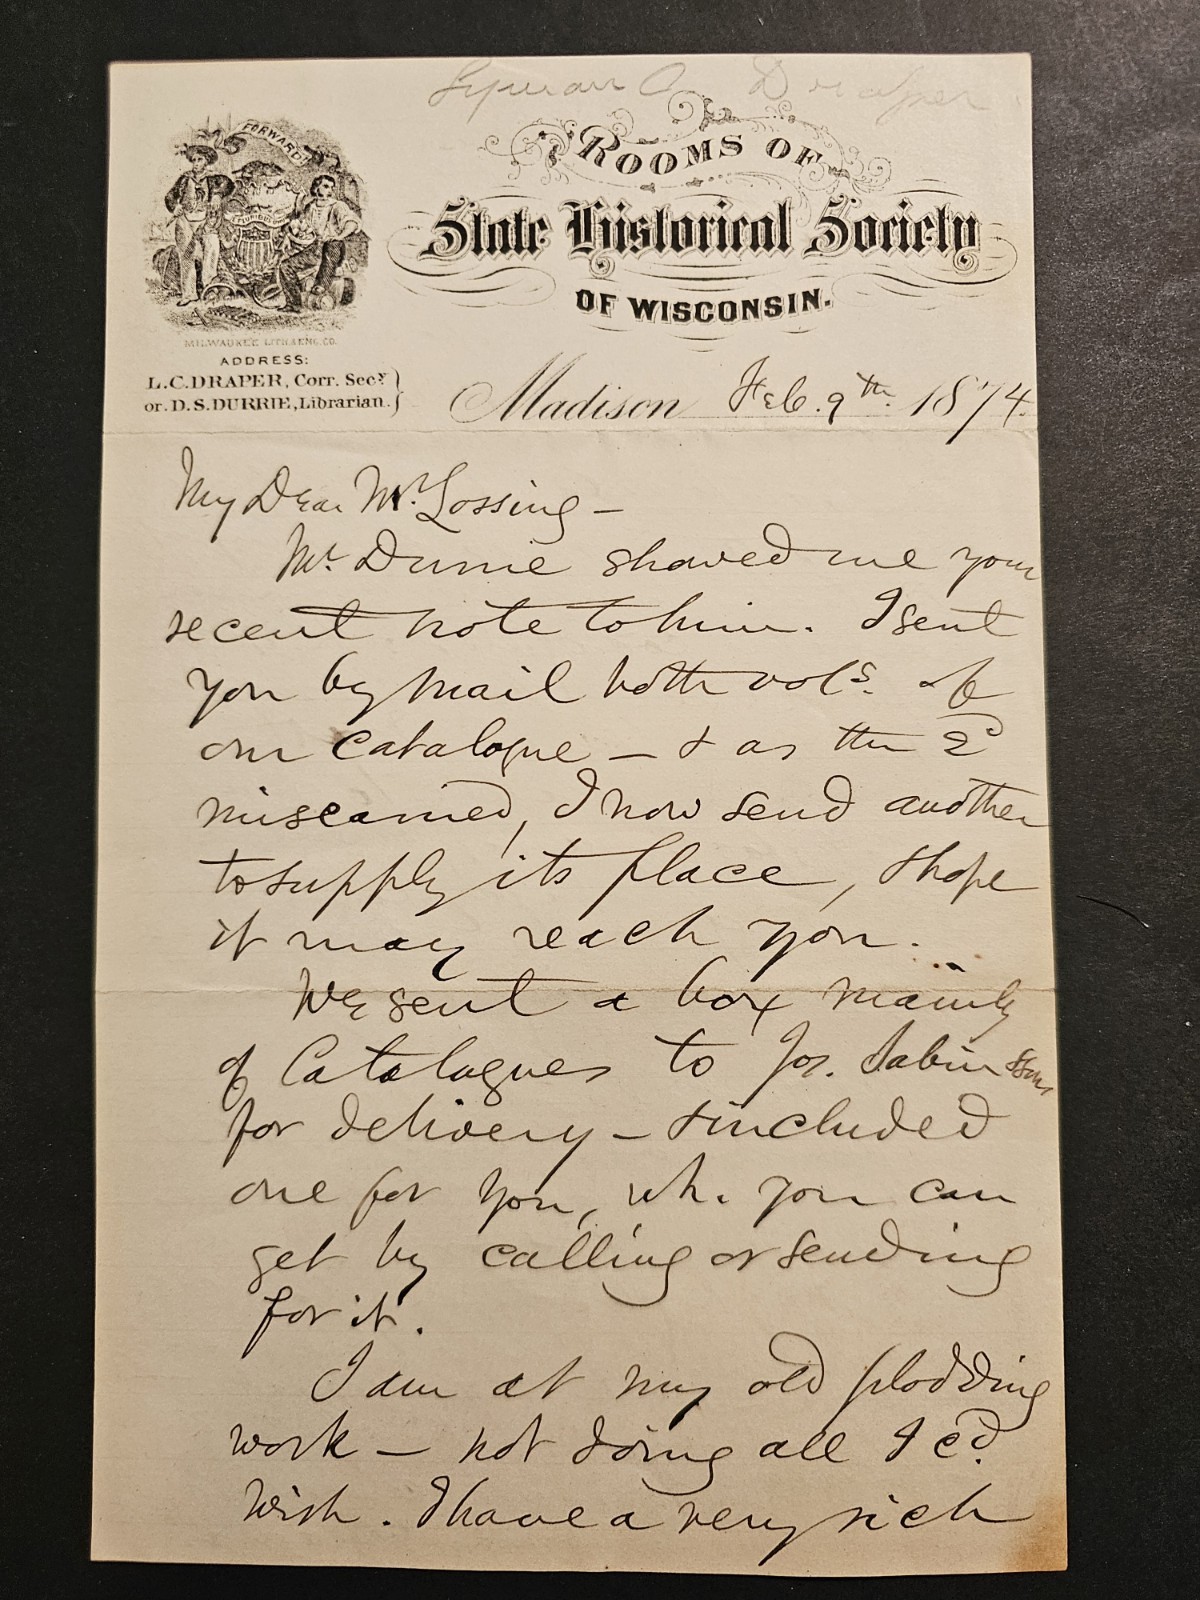 Lyman C. Draper
FORWARD
ROOMS OF
State Historical Society
OF WISCONSIN.
MILWAUKEE LITH & ENG. CO.
ADDRESS:
L.C. DRAPER, Corr. Secy.
or. D.S. DURRIE, Librarian.
Madison Feb. 9th. 1874.
My Dear Mr. Lossing –
Mr. Durrie showed me your
recent note to him. I sent
you by mail both vols. of
our catalogue – & as the 2d
miscarried, I now send another
to supply its place, & hope
it may reach you.
We sent a box mainly
of Catalogues to Jos. Sabin & Sons
for delivery – & included
one for you, wh. you can
get by calling or sending
for it.
I am at my old plodding
work – not doing all I cd.
wish. I have a very rich